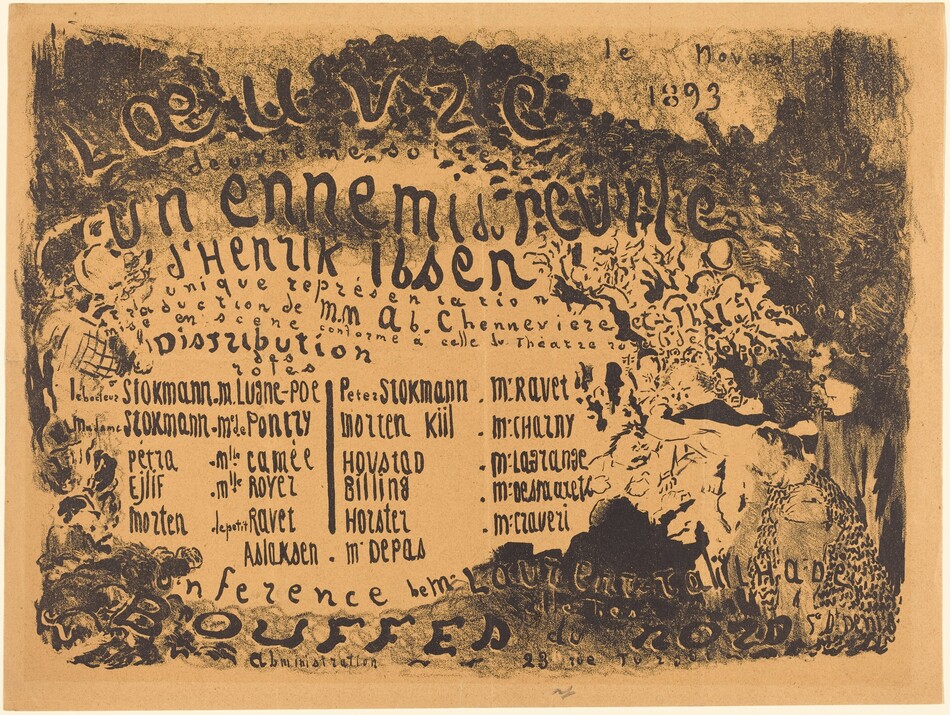 le Novemb
1893
L'OEUVRE
deuxième soirée
un ennemi du peuple
d'Henrik Ibsen
unique représentation
traduction de M.M Ad. Chennevière et
mise en scène conforme à celle du Théatre
Distribution
des
roles
le docteur Stokmann. m. Lugné-Poe
Madame Stokmann. Mme de Pontry
pétra . mlle camée
Ejlif . mlle Royer
Morten . le petit Ravet
Peter Stokmann . Mr Ravet
Morten Kiil . mr Charny
Hovstad . mr Lagrange
Billing . mr Desmarets
Horster . mr Craveri
Aslaksen . mr Depas
Conference de Mr Laurent Tailhade
BOUFFES du NORD St Denis
Administration 23 rue Turgot